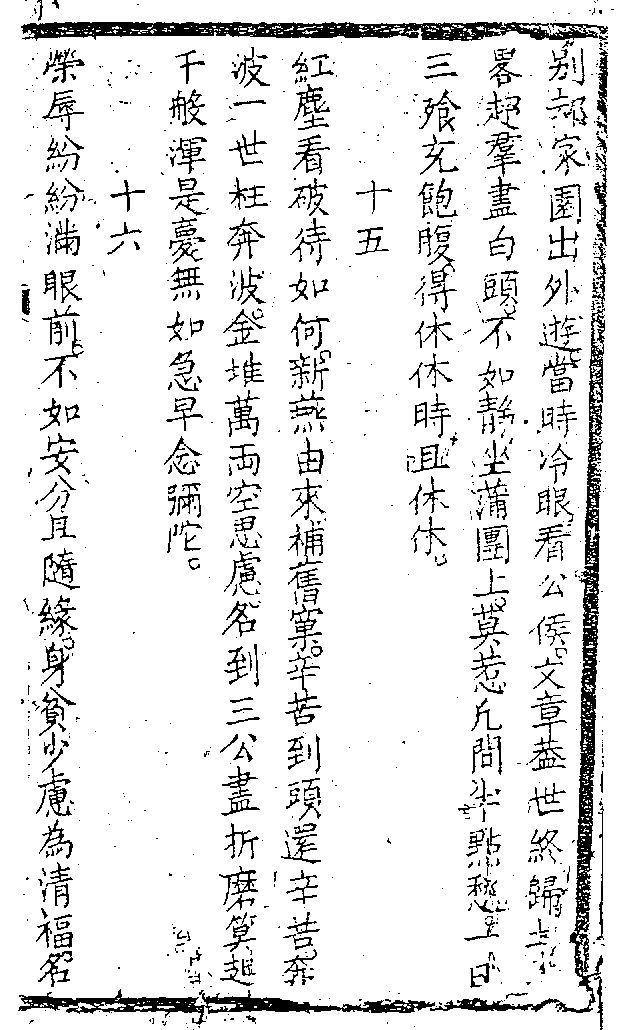 别却家園出外遊。當時冷眼看公侯。文章葢世終歸
畧超羣盡白頭。不如静坐蒲團上。莫惹凡間半點愁。一日
三飡充飽腹。得休休時且休休。
十五
紅塵看破待如何。新燕由來補舊窠。辛苦到頭還辛苦。奔
波一世枉奔波。金堆萬両空思慮。名到三公盡折磨。算起
千般渾是憂無如急早念彌陀。
十六
榮辱紛紛滿眼前。不如安分且隨緣。身貧少慮為清福。名